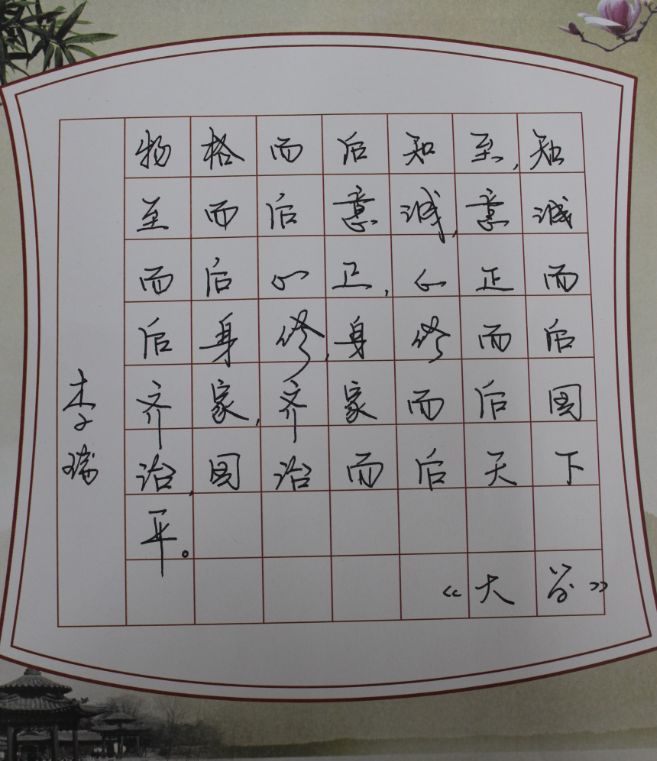 物格而后知至,知
至而后意诚,意诚
而后心正,心正而
后身修,身修而后
齐家,齐家而后国
治,国治而后天下
平。
《大学》
李瑞